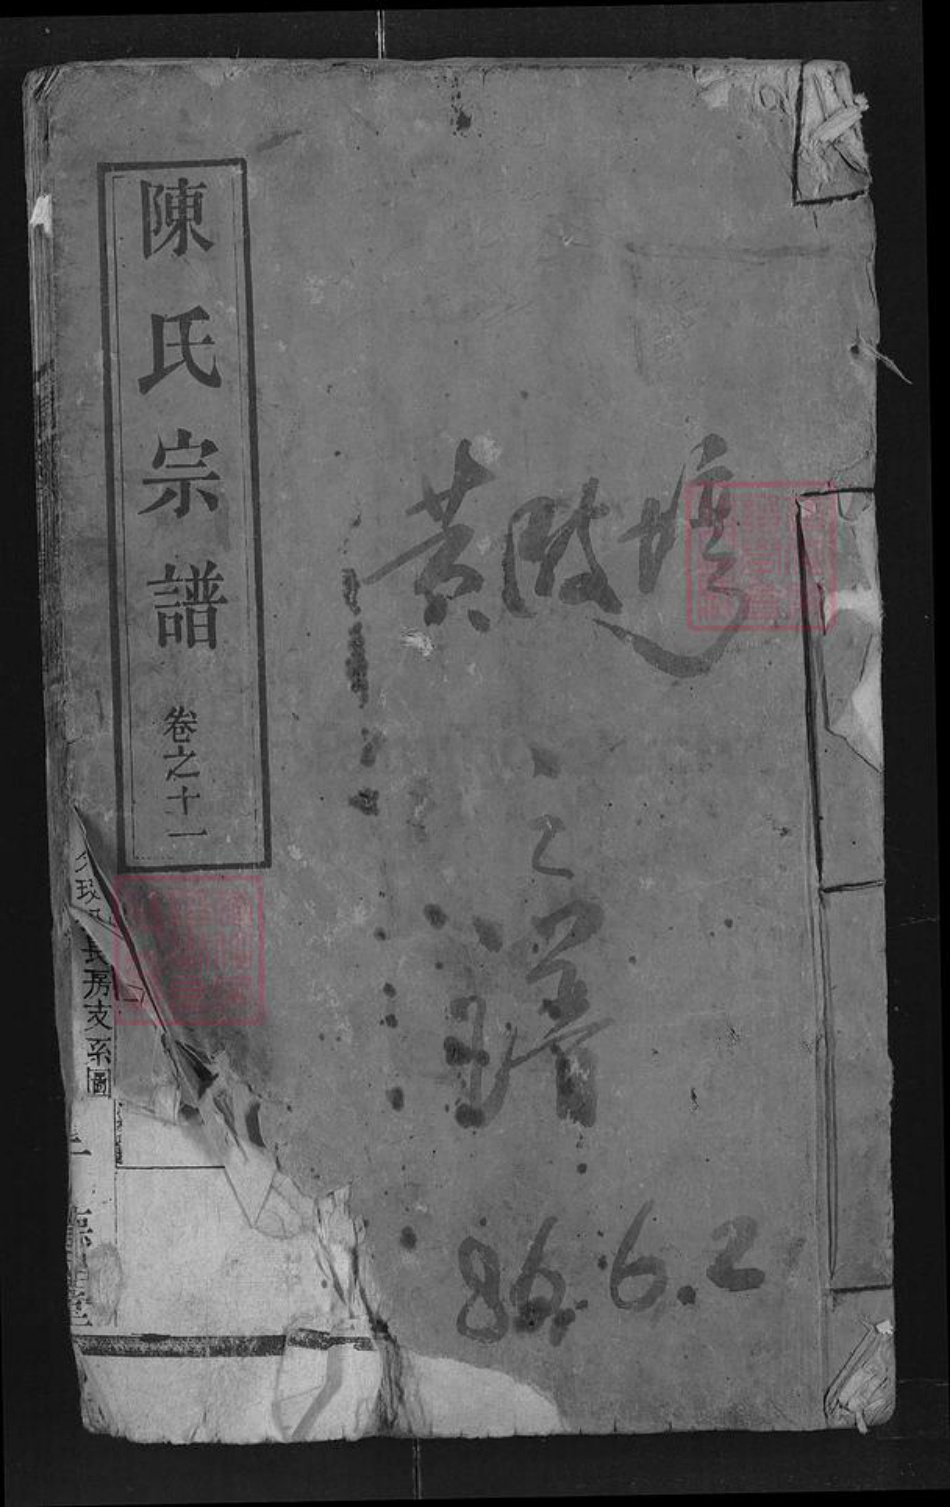 陳氏宗譜 卷之十一
黄陂塆
之
譜
86.6.2
長房支系圖